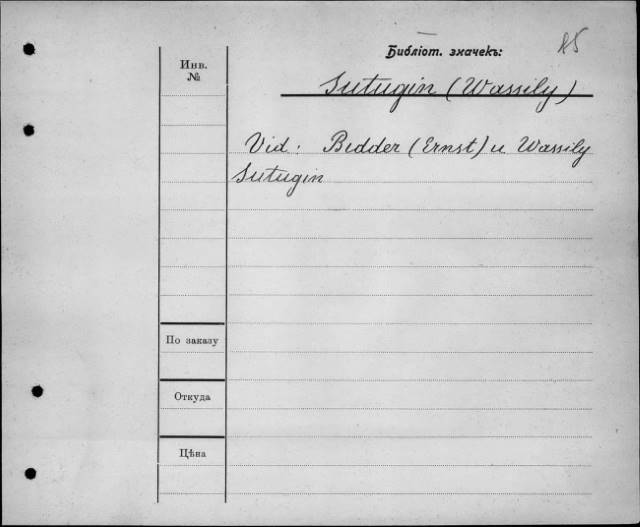 Библіот. значекъ: 85
Инв.
№
Sutugin (Wassily)
Vid: Bidder (Ernst) u Wassily
Sutugin
По заказу
Откуда
Цѣна